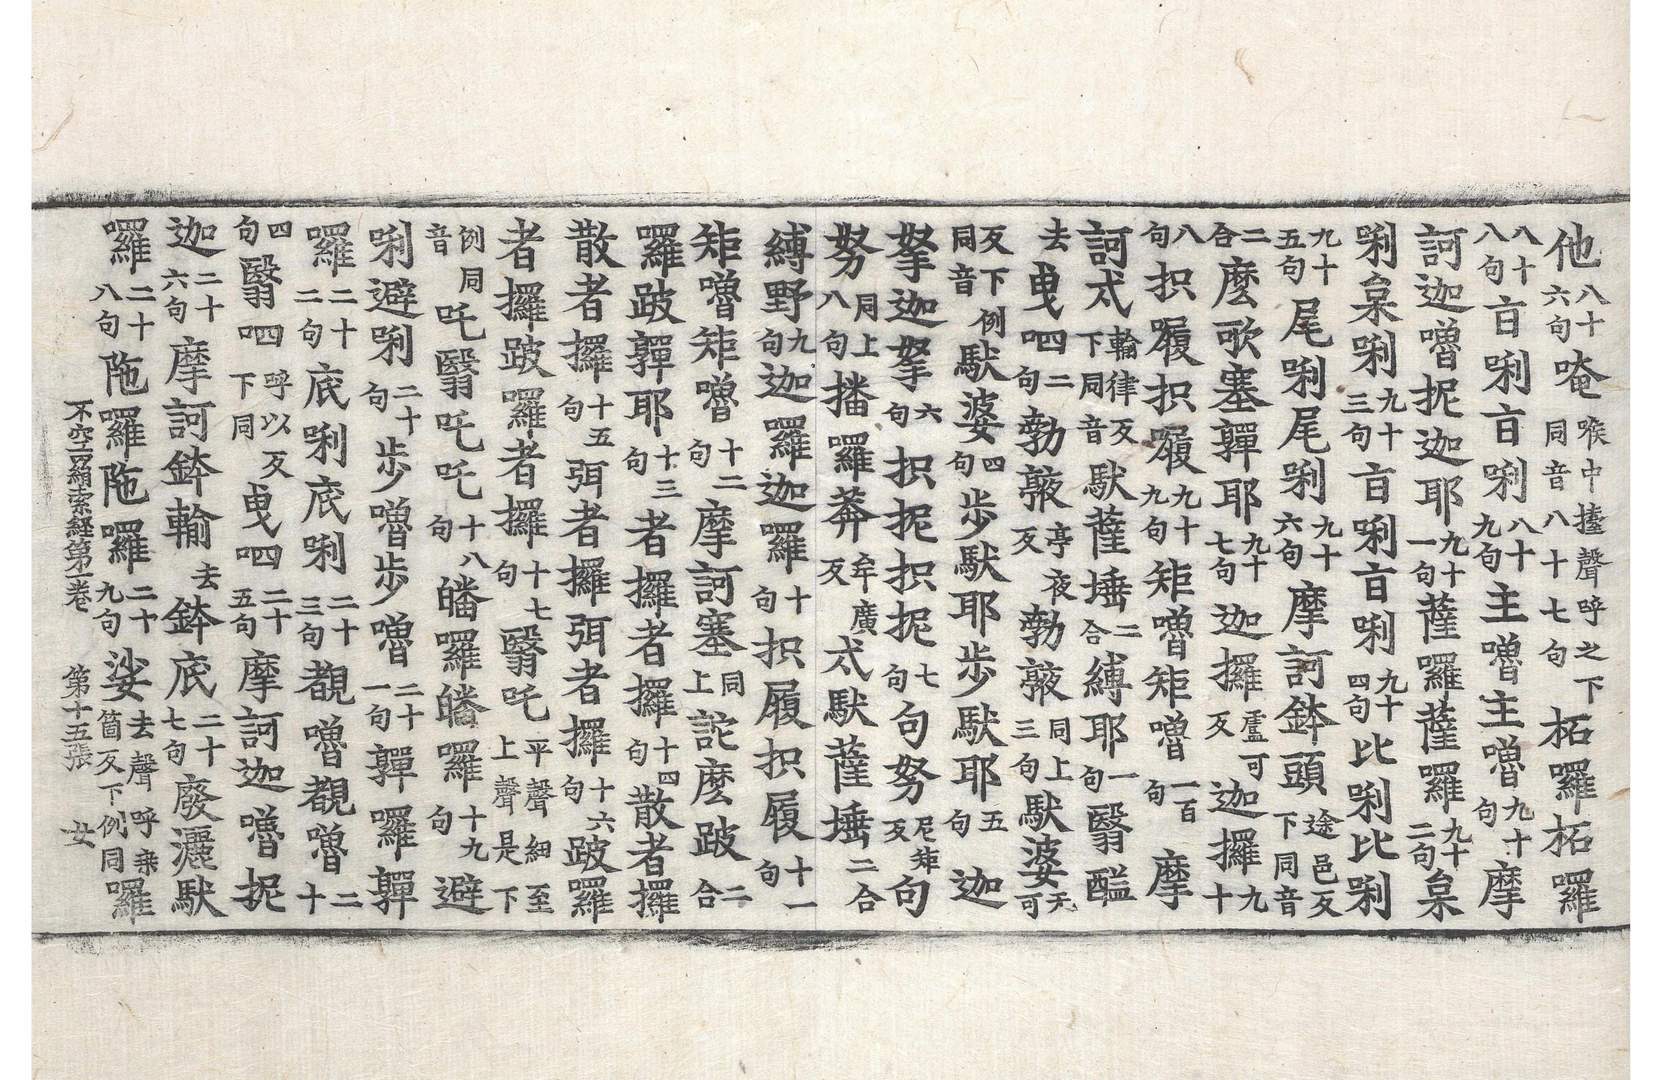 他八十六句唵喉中擡聲呼之下同音八十七句柘囉柘囉
八十八句㐭唎㐭唎八十九句主嚕主嚕九十句摩
訶迦嚕抳迦耶九十一句薩囉薩囉九十二句枲
唎枲唎九十三句㐭唎㐭唎九十四句比唎比唎
九十五句尾唎尾唎九十六句摩訶鉢頭途邑反下同音
二合麽歌塞嚲耶九十七句迦攞盧可反迦攞九十
八句抧履抧履九十九句矩嚕矩嚕一百句摩
訶忒輸律反下同音馱薩埵二合縛耶一句翳醯
去曳呬二句勃䕧亭夜反勃䕧同上三句馱婆无可
反下例同音馱婆四句步馱耶步馱耶五句迦
拏迦拏六句抧抳抧抳七句句努尼矩反句
努同上八句播囉莾牟廣反忒馱薩埵二合
縛野九句迦囉迦囉十句抧履抧履十一句
矩嚕矩嚕十二句摩訶塞同上詑麽跛二合
囉跛嚲耶十三句者攞者攞十四句散者攞
散者攞十五句弭者攞弭者攞十六句跛囉
者攞跛囉者攞十七句翳吒平聲細至上聲是下
例同音吒翳吒吒十八句皤囉皤囉十九句避
唎避唎二十句步嚕步嚕二十一句嚲囉嚲
囉二十二句底唎底唎二十三句覩嚕覩嚕二十
四句翳呬呼以反下同曳呬二十五句摩訶迦嚕抳
迦二十六句摩訶鉢輸去鉢底二十七句廢灑馱
囉二十八句陁囉陁囉二十九句娑去聲呼桒箇反下例同囉
不空羂索經第一卷　第十五張　女